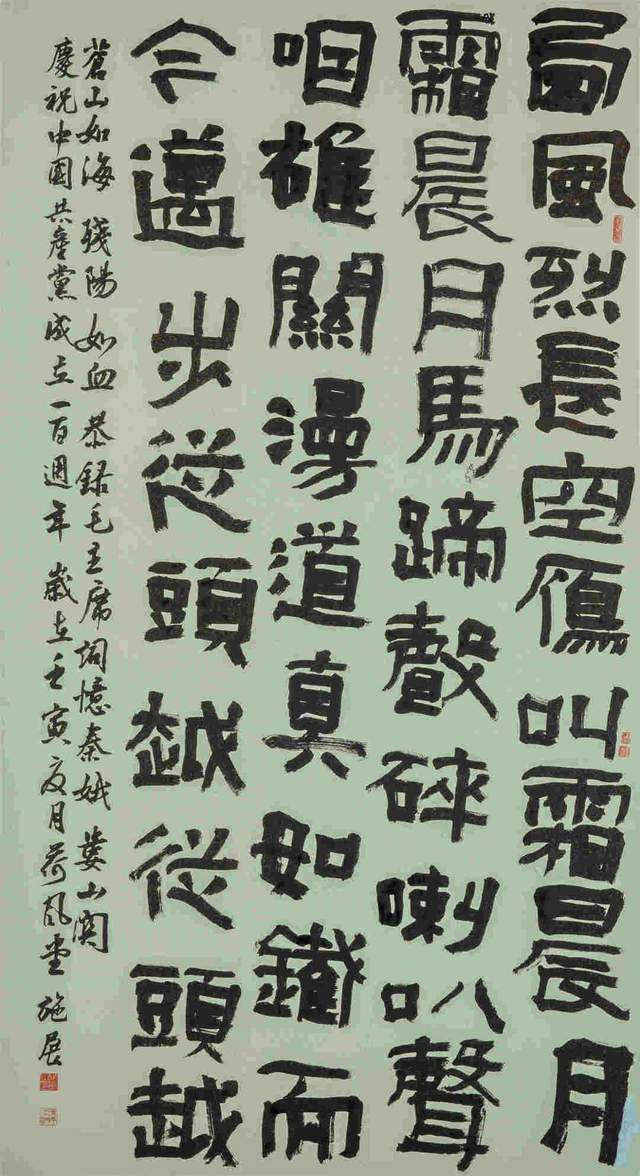 西風烈長空鴈叫霜晨月
霜晨月馬蹄聲碎喇叭聲
咽雄關漫道真如鐵而
今邁步從頭越從頭越
蒼山如海 殘陽如血 恭録毛主席詞憶秦娥 婁山關
慶祝中國共產黨成立一百週年 歲在壬寅夏月荷風堂 施展